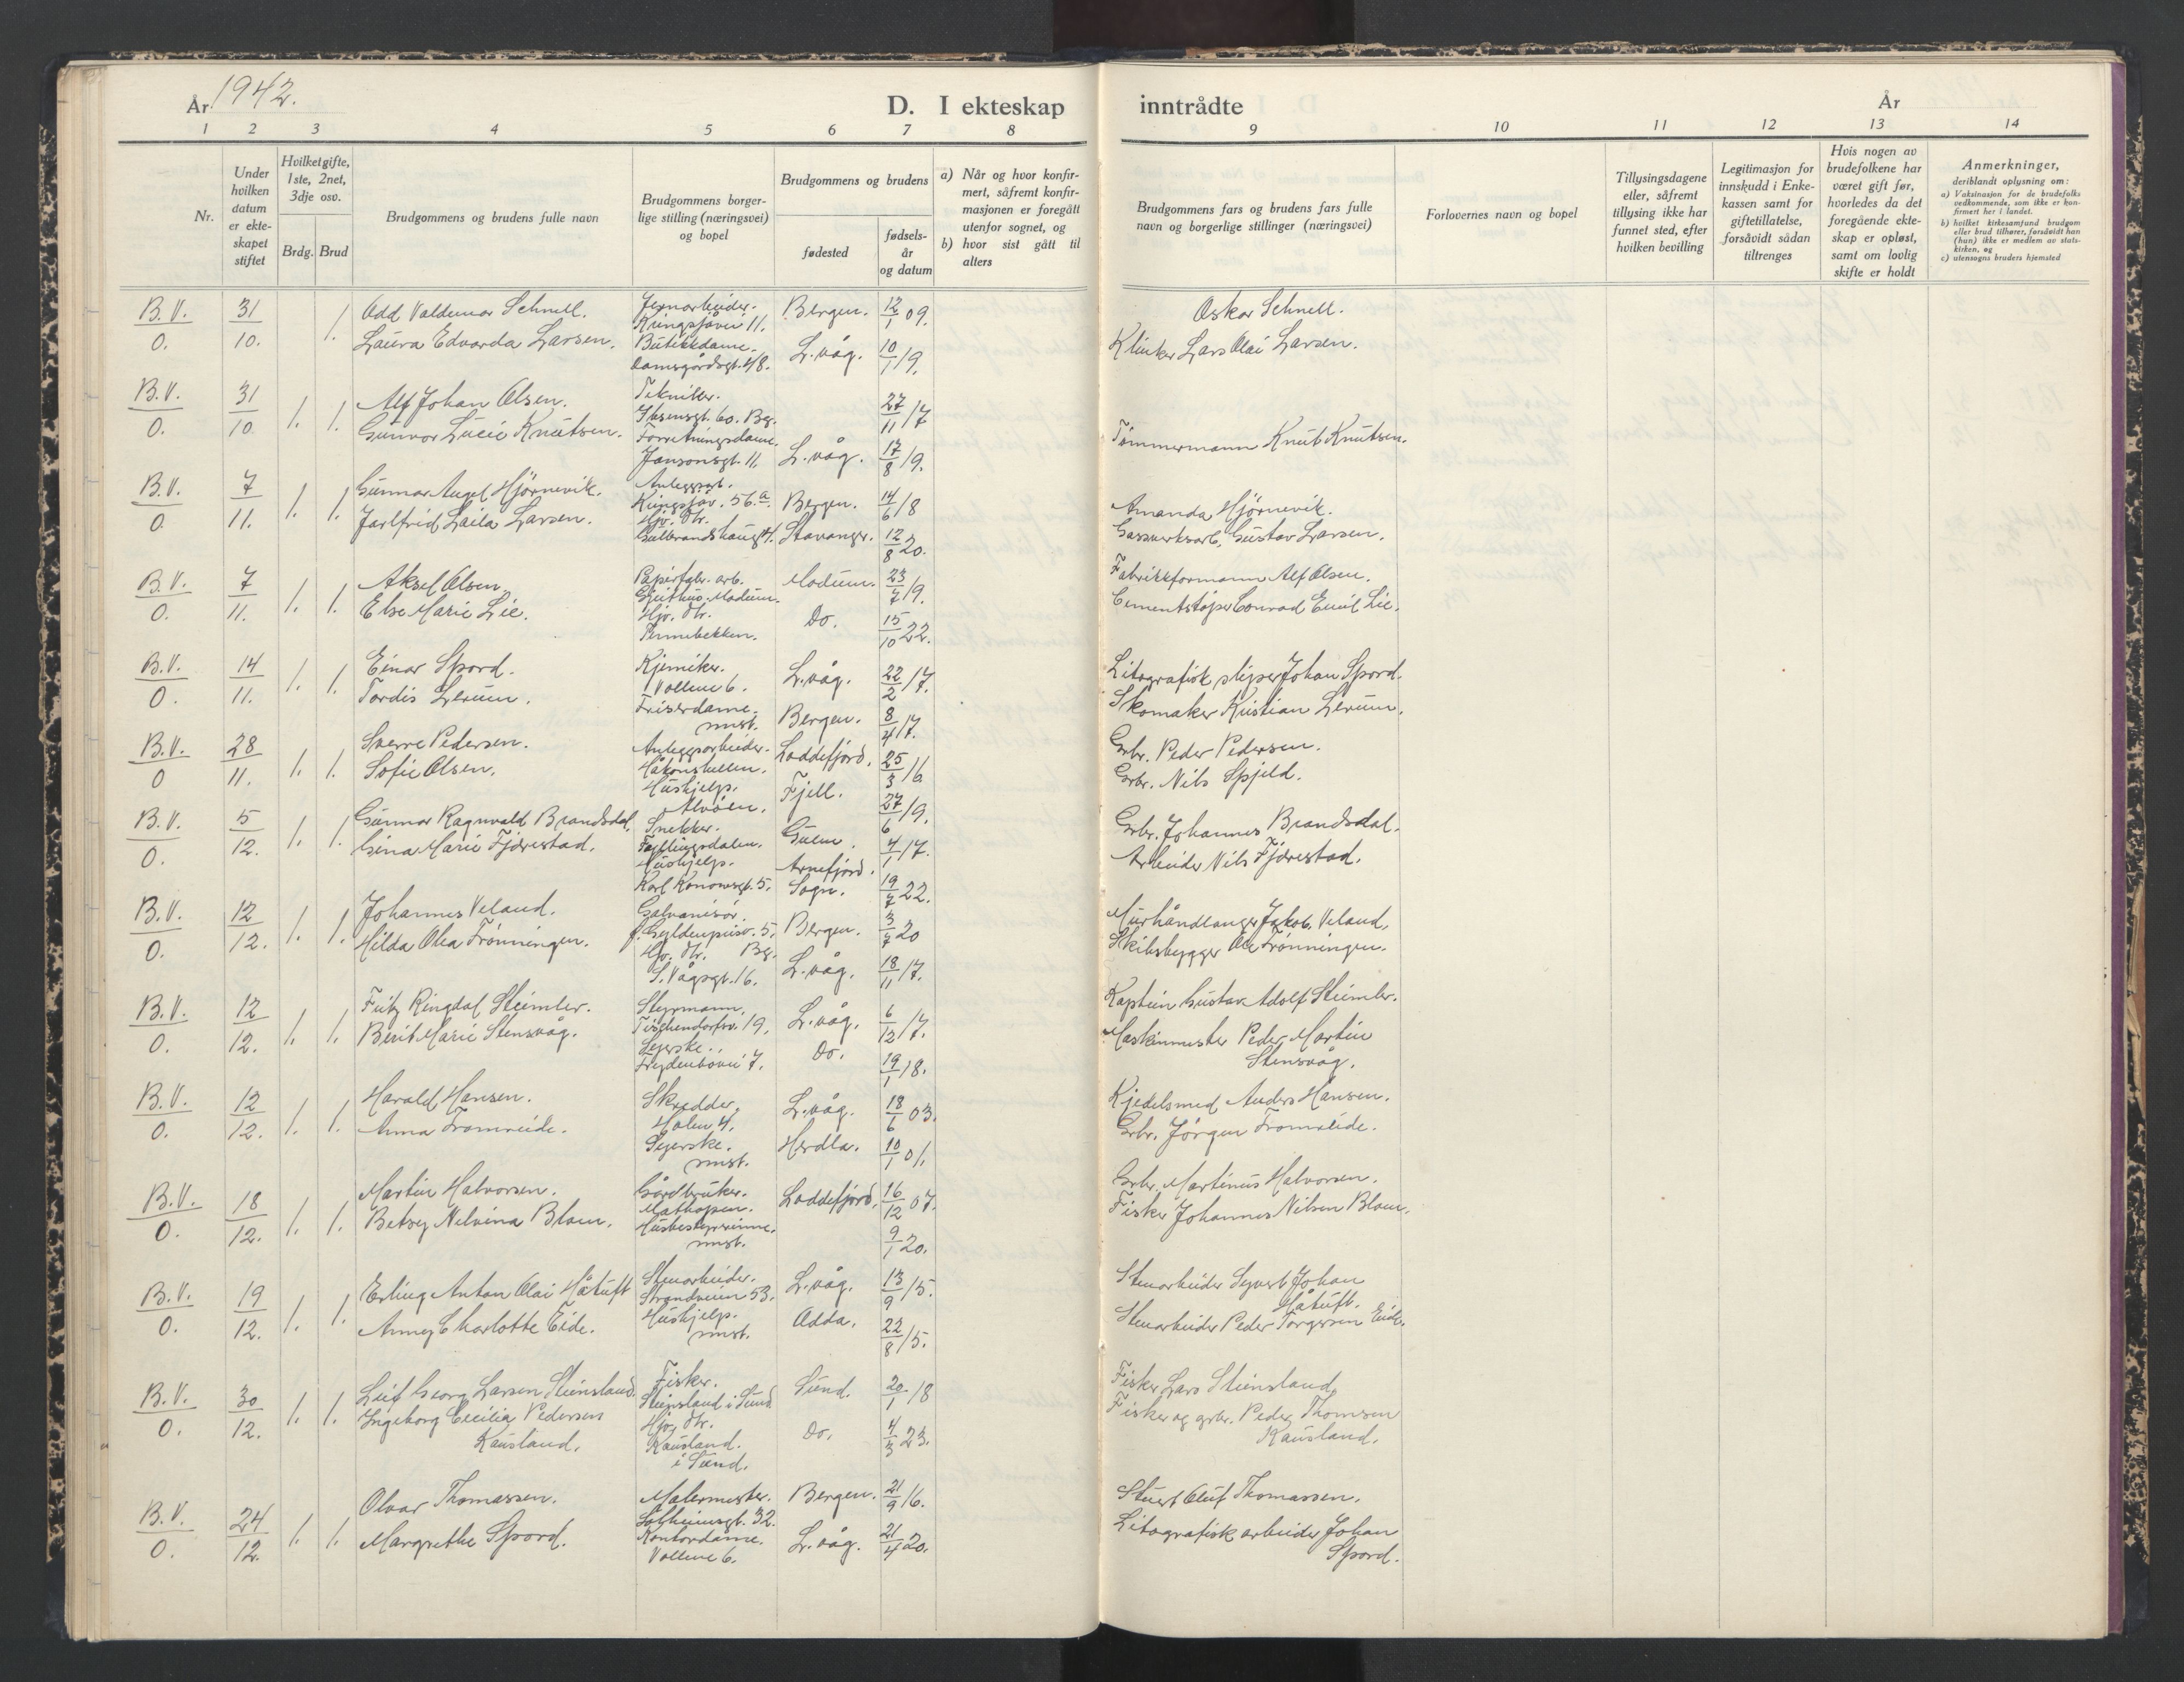 År 1942.
D. I ekteskap inntrådte
År
1 2 3 4 5 6 7 8 9 10 11 12 13 14
Nr.
Under hvilken datum er ekte-skapet stiftet
Hvilket gifte, 1ste, 2net, 3dje osv.
Brdg. Brud
Brudgommens og brudens fulle navn
Brudgommens borger-lige stilling (næringsvei) og bopel
Brudgommens og brudens
fødested
fødsels-år og datum
a) Når og hvor konfir-mert, såfremt konfir-masjonen er foregått utenfor sognet, og
b) hvor sist gått til alters
Brudgommens fars og brudens fars fulle navn og borgerlige stillinger (næringsvei)
Forlovernes navn og bopel
Tillysingsdagene eller, såfremt tillysing ikke har funnet sted, efter hvilken bevilling
Legitimasjon for innskudd i Enke-kassen samt for giftetillatelse, forsåvidt sådan tiltrenges
Hvis nogen av brudefolkene har været gift før, hvorledes da det foregående ekte-skap er opløst, samt om lovlig skifte er holdt
Anmerkninger,
deriblandt oplysning om:
a) Vaksinasjon for de brudefolks vedkommende, som ikke er kon-firmert her i landet.
b) hvilket kirkesamfund brudgom eller brud tilhører, forsåvidt han (hun) ikke er medlem av stats-kirken, og
c) utensogns bruders hjemsted
B.V. 31 Odd Valdemar Schnell. Jernarbeider. Bergen. 12/1 09. Oskar Schnell.
Kringsjåvei 11.
O. 10. 1. Laura Edvarda Larsen. Butikkdame. L.våg. 10/1 19. Klinker Lars Olai Larsen.
Damsgårdsgt. 48.
B.V. 31 1. 1. Alf Johan Olsen. Tekniker. 27/11 17
Ibsensgt. 60. Bg.
O. 10 Gunvor Lucie Knutsen. Forretningsdame. L.våg. 17/8 19. Tømmermann Knut Knutsen.
Jansonsgt. 11.
B.V. 7 1. 1. Gunnar August Hjørnevik. Anleggsarb. Bergen. 14/6 18 Amanda Hjørnevik.
Kringsjåv. 56.a.
O. 11. Jarlfrid Laila Larsen. Hjv. dtr. Stavanger. 12/8 20. Gassverksarb. Gustav Larsen.
B.V. 7 1. 1. Aksel Olsen. Papirfabr. arb. Modum. 23/7 19. Fabrikkformann Alf Olsen.
Geithus Modum.
O. 11. Else Marie Lie. Hjv. dtr. Do. 15/10 22. Cementstøper Conrad Emil Lie.
Tennebekken.
B.V. 14 1. 1. Einar Spord. Kjemiker. L.våg. 22/2 17. Litografisk sliper Johan Spord.
Vollene 6.
O. 11. Tordis Lerum. Friserdame. Bergen. 8/4 17. Skomaker Kristian Lerum.
smst.
B.V. 28 1. 1. Sverre Pedersen. Anleggsarbeider. Loddefjord. 25/3 16 Grbr. Peder Pedersen.
Håkonshellen.
O 11. Sofie Olsen. Hushjelp. Fjell. 27/6 19. Grbr. Nils Spjeld.
Alvøen.
B.V. 5 1. 1. Gunnar Ragnvald Brandsdal. Snekker. Gulen. 4/1 17. Grbr. Johannes Brandsdal.
Fyllingsdalen.
O. 12. Gina Marie Fjærestad. Hushjelp. Arnefjord. Sogn. 19/7 22. Arbeider Nils Fjærestad.
Karl Konowsgt. 5.
B.V. 12 1. 1. Johannes Veland. Galvanisør. Bergen. 3/7 20 Murhåndlanger Jakob Veland.
f. Gyldenprisv. 5. Bg.
O. 12. Hilda Olea Trønningen. Hjv. dtr. L.våg. 18/11 17. Skibsbygger Ole Trønningen.
S. Vågsgt. 16.
B.V. 12 1. 1. Fritz Ringdal Steimler. Styrmann. L.våg. 6/12 17. Kaptein Gustav Adolf Steimler.
Tischendorfsv. 19.
O. 12. Berit Marie Stensvåg. Syerske. Do. 19/1 18. Maskinmester Peder Martin Stensvåg.
Frydenbøvei 7.
B.V. 12 1. 1. Harald Hansen. Skredder. L.våg. 18/6 03. Kjedelsmed Anders Hansen.
Holen 4.
O. 12. Anna Tromreide. Syerske. Herdla. 10/1 01. Grbr. Jørgen Tromreide.
smst.
B.V. 18 1. 1. Martin Halvorsen. Gårdbruker. Loddefjord. 16/12 07. Grbr. Martinus Halvorsen.
Mathopen.
O. 12. Betsy Nelvina Blom. Husbestyrerinne. 9/1 20. Fisker Johannes Nilsen Blom.
smst.
B.V. 19 1. 1. Erling Anton Olai Håtuft Stenarbeider. L.våg. 13/9 15. Stenarbeider Syvert Johan Håtuft.
Strandveien 53.
O. 12. Anney Charlotte Eide. Hushjelp. Odda. 22/8 15. Stenarbeider Peder Torgersen Eide.
smst.
B.V. 30 1. 1. Leif Georg Larsen Steinsland. Fisker. Sund. 20/1 18 Fisker Lars Steinsland.
Steinsland i Sund
O. 12. Ingeborg Cecilia Pedersen Kausland. Hjv. dtr. Do. 4/3 23. Fisker og grbr. Peder Thomsen Kausland.
Kausland. i Sund.
B.V. 24 1. 1. Olvar Thomassen. Malermester. Bergen. 21/9 16. Stuert Oluf Thomassen.
Solheimsgt. 32.
O. 12. Margrethe Spord. Kontordame. L.våg. 21/4 20. Litografisk arbeider Johan Spord.
Vollene 6.